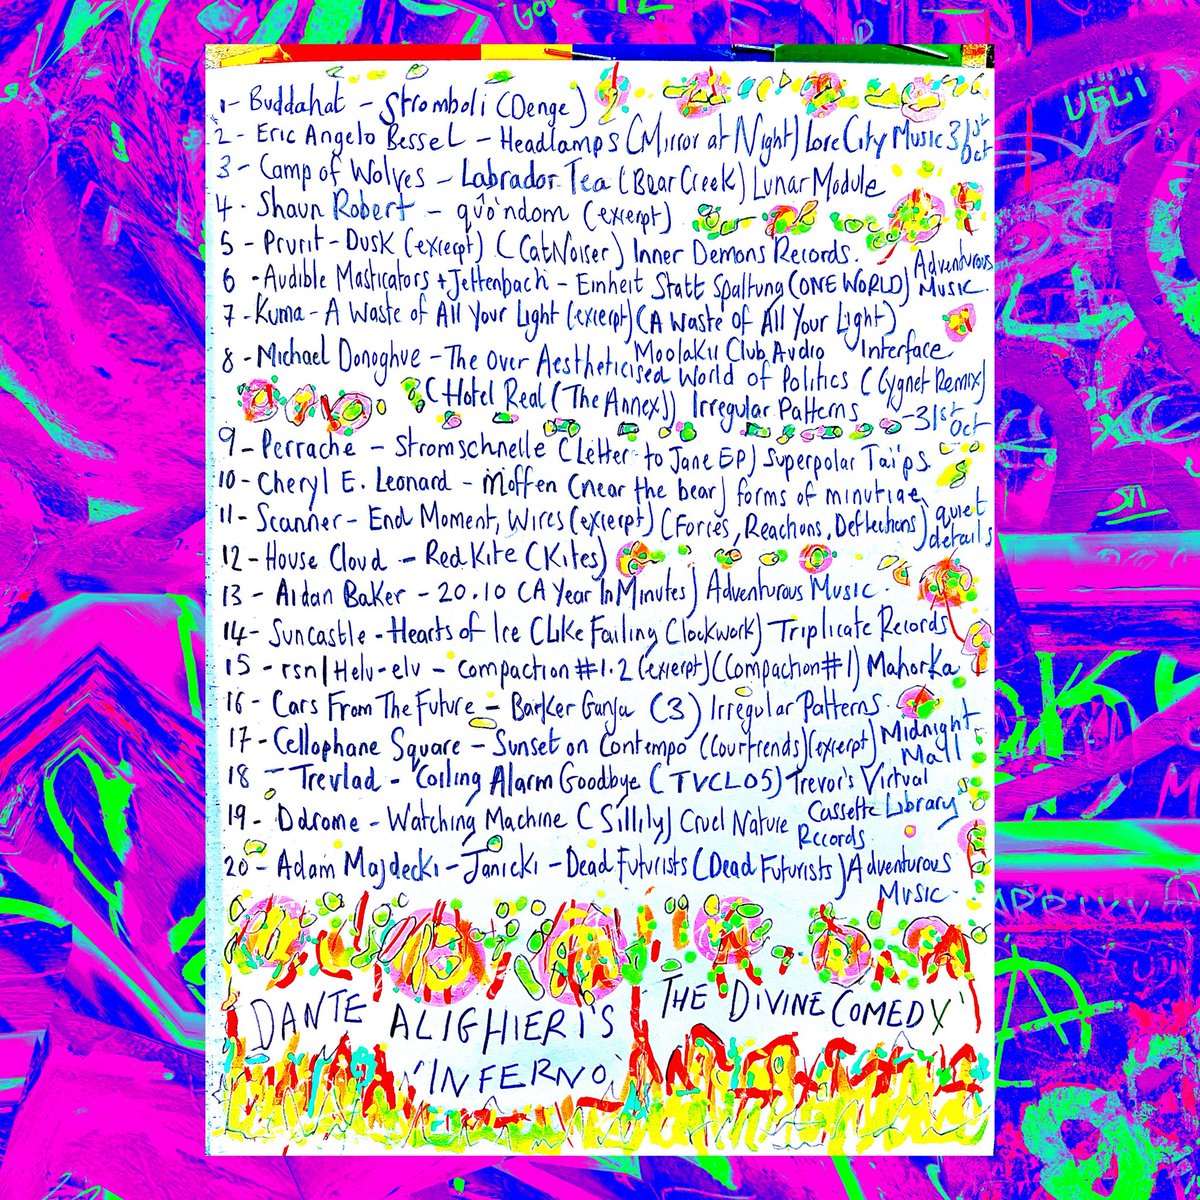 1 - Buddahat - Stromboli (Denge)
2 - Eric Angelo Bessel - Headlamps (Mirror at Night) Lore City Music 31st Oct
3 - Camp of Wolves - Labrador Tea (Bear Creek) Lunar Module
4 - Shaun Robert - quo'ndom (exierpt)
5 - Prurit - Dusk (exierpt) (CatNoiser) Inner Demons Records.
6 - Audible Masticators + Jettenbach - Einheit Statt Spaltung (ONE WORLD) Adventurous Music.
7 - Kuma - A Waste of All Your Light (exierpt) (A Waste of All Your Light)
Moolakii Club Audio Interface
8 - Michael Donoghue - The Over Aestheticised World of Politics (Cygnet Remix)
(Hotel Real (The Annex)) Irregular Patterns - 31st Oct
9 - Perrache - Stromschnelle (Letter to Jane EP) Superpolar Taïps.
10 - Cheryl E. Leonard - Moffen (near the bear) forms of minutiae
11 - Scanner - End Moment, Wires (exierpt) (Forces, Reactions, Deflections) quiet details
12 - House Cloud - Red Kite (Kites)
13 - Aidan Baker - 20.10 (A Year In Minutes) Adventurous Music.
14 - Suncastle - Hearts of Ice (Like Failing Clockwork) Triplicate Records
15 - rsn/Helv-elv - Compaction #1.2 (exierpt) (Compaction #1) Mahorka
16 - Cars From The Future - Barker Ganja (3) Irregular Patterns
17 - Cellophane Square - Sunset on Contempo (Courtrends) (exierpt) Midnight Mall
18 - Trevlad - Coiling Alarm Goodbye (TVCL05) Trevor's Virtual Cassette Library
19 - Ddrome - Watching Machine (Sillily) Cruel Nature Records
20 - Adam Majdecki - Janicki - Dead Futurists (Dead Futurists) Adventurous Music.
DANTE ALIGHIERI'S
'INFERNO'
THE 'DIVINE COMEDY'
UELI